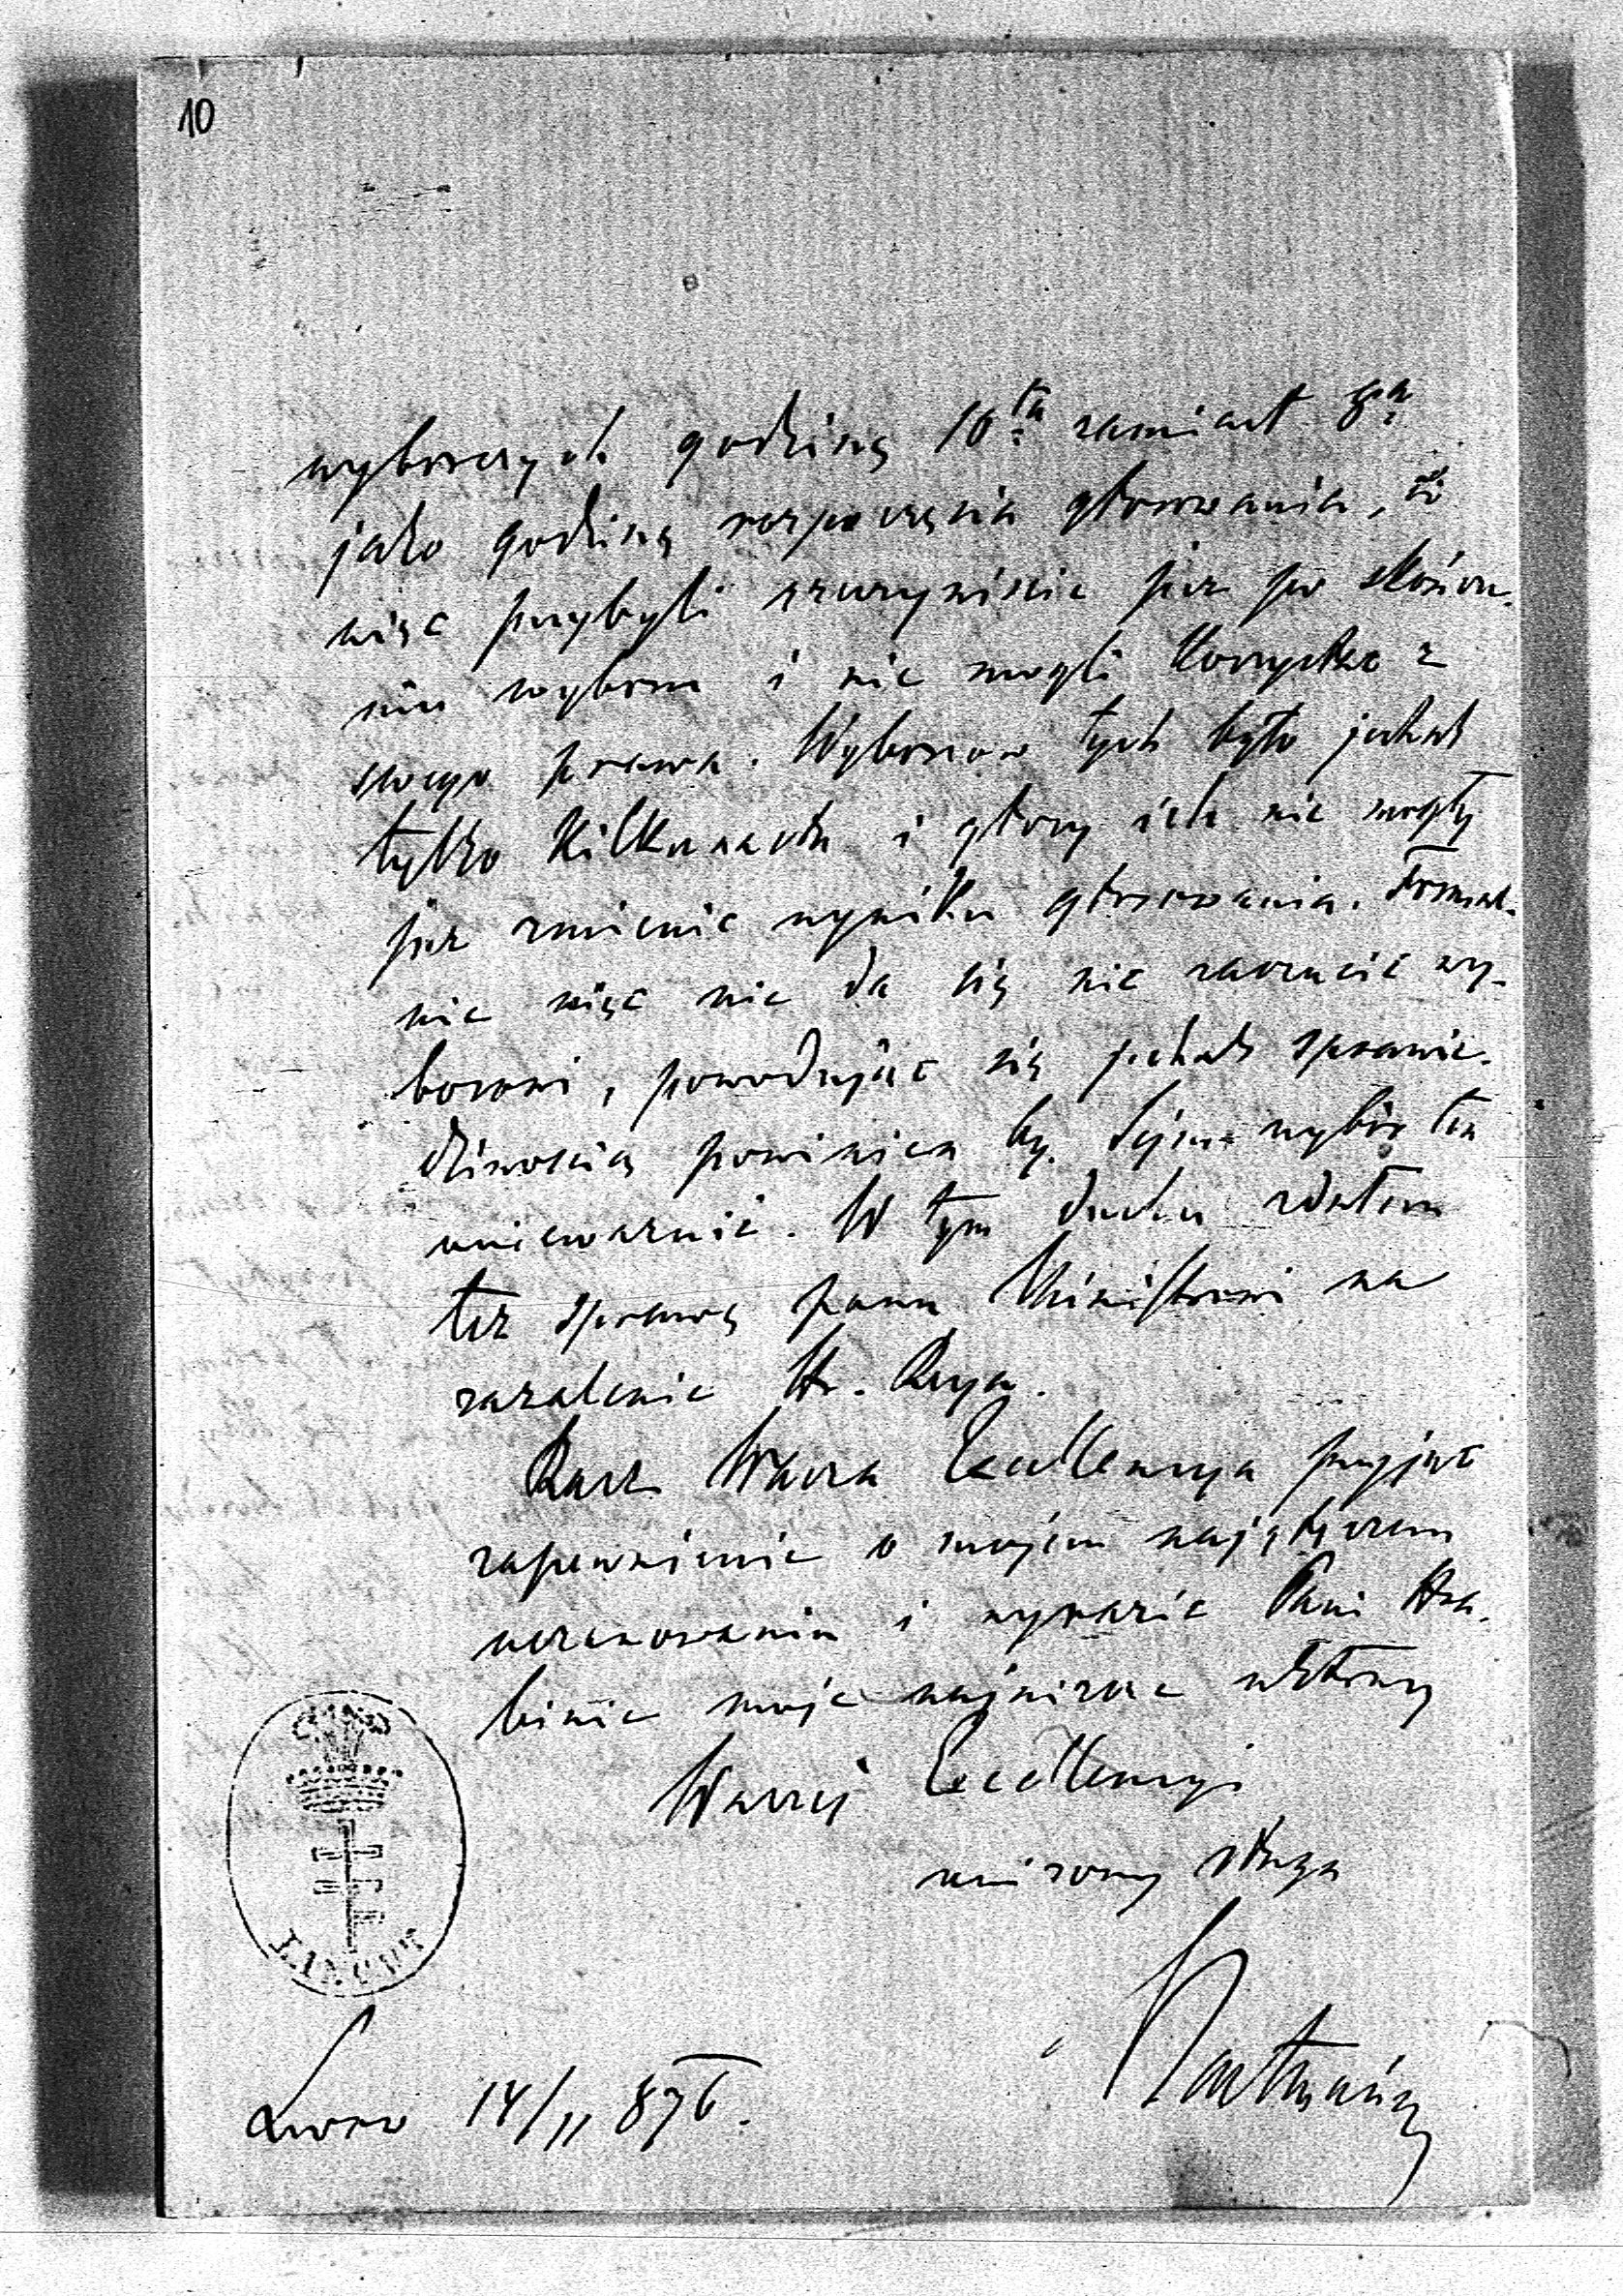 10
wyborczych godzinę 10tą zamiast 8ą
jako godzinę rozpoczęcia głosowania, ci
więc przybyli rzeczywiście już po skończe-
niu wyboru i nie mogli korzystać z
swego prawa. Wyborców tych było jednak
tylko kilkunastu i głosy ich nie mogły
już zmienić wyniku głosowania. Formal-
nie więc nie da się nic zarzucić wy-
borowi, powodując się jednak sprawie-
dliwością powinien by Sejm wybór ten
unieważnić. W tym duchu zdałem
też sprawę panu Ministrowi na
zażalenie Hr. Reya.
Racz Wasza Excellencya przyjąć
zapewnienie o mojem najgłębszem
uszanowaniu i wyrazić Pani Hra-
binie moje najniższe ukłony
Waszej Excellencyi
uniżony sługa
Lwów 14/11 876.
ŁAŃCUT